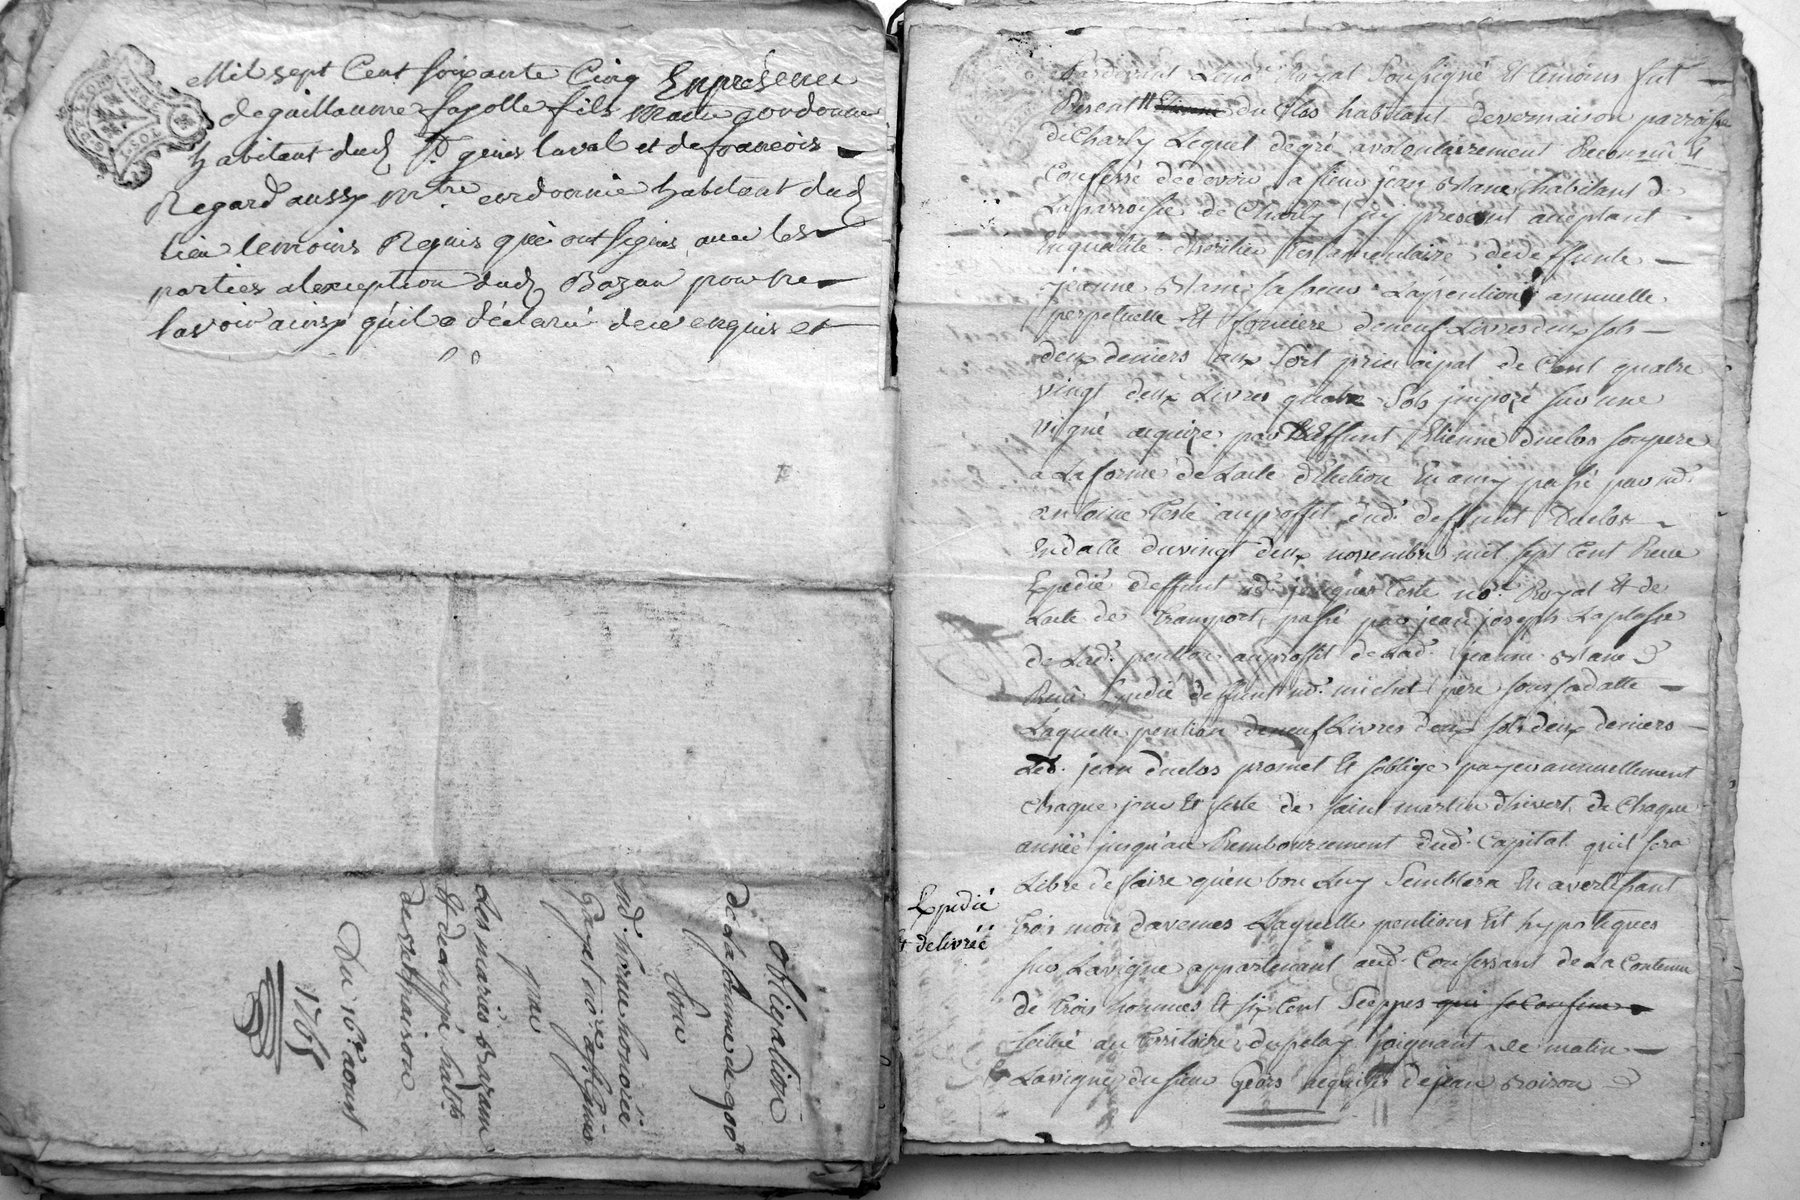 Mil sept Cent soixante Cinq En présence
de guillaume fayolle fils Maitre cordonnier
habitant dud St genis laval et de francois
Regard aussy mtre cordonnie habitant dud
lieu temoins Requis qui ont signés avec les
parties a lexception dud Bazan pour ne
savoir ainsy qu'il a déclaré de ce enquis et
obligation
de la somme de 900tt
Pour
md. horune honorée
par
Les mariés Bazan
Et de Luppé habts
de vernaison
Du 16e. aoust
1765
Pardevant Leno.re Royal Sousigné Et temoins fut
Present # Etienne duclos habitant de vernaison parroisse
de Charly Lequel de gré a volontairement Reconnu Et
Confessé de devoir a sieur jean habitant de
La parroisse de Charly jcy present aceptant
En qualité d'heritier testamentaire de deffunte
jeanne sa soeur La pention annuelle
perpetuelle Et fonciere de neuf Livres deux sols
deux deniers au Sort principal de Cent quatre
vingt deux Livres quatre Sols jmpozé sur une
vigne acquize par Deffunt Etienne duclos son pere
a La forme de Lacte d'Election En amy passé par md.
antoine Teste au proffit dud. deffunt Duclos
En datte du vingt deux novembre mil sept Cent Treize
Expedié deffunt md. jacques Teste no.re Royal Et de
Lacte de Transport passé par jean joseph Laplasse
de Lad. pention au proffit de Lad. jeanne
Reçu Expedié deffunt md. michel père sous sa datte
Laquelle pention de neuf Livres deux sols deux deniers
Led. jean duclos promet Et soblige payer annuellement
Chaque jour Et feste de saint martin d'hivert de Chaque
année jusqu'au Remboursement dud. Capital qu'il sera
Libre de faire qu'en bon Luy Semblera En avertissant
Trois mois davences Laquelle pentions Est hypotequés
sur La vigne appartenant aud. Confessant de La Contenue
de Trois hommes Et six Cent Seppes qui se Confine
scitué au Territoire du pelay joignant de matin
La vigne du sieur Geors acquise de jean Roizon
Expedié
Et delivréé